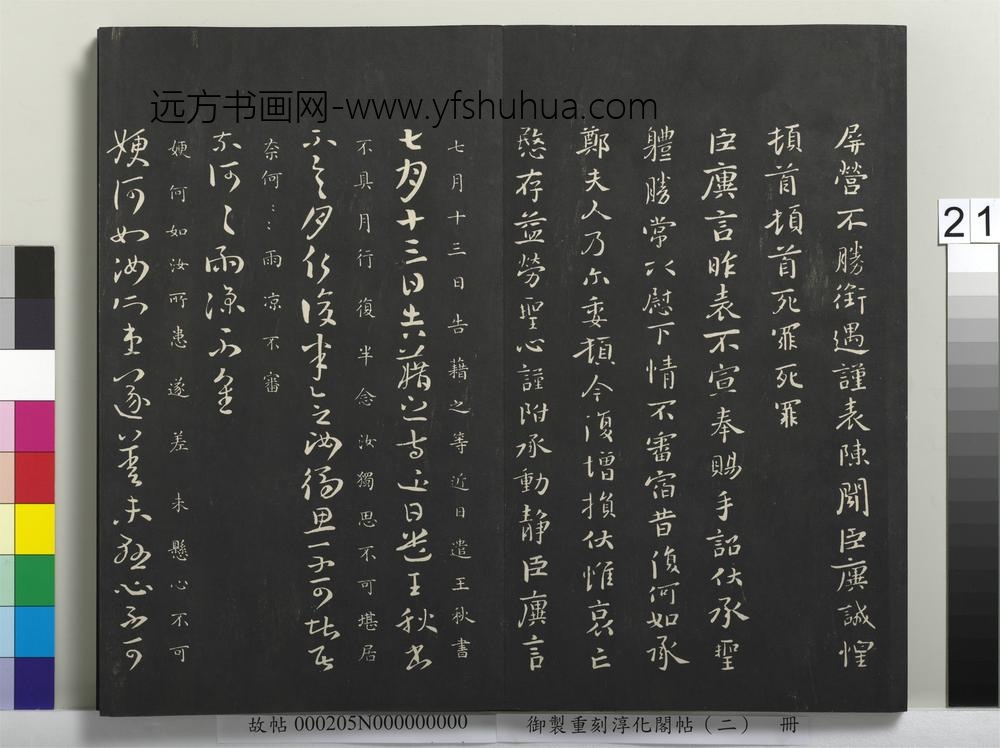 远方书画网-www.yfshuhua.com
屏營不勝銜遇謹表陳聞臣廙誠惶
頓首頓首死罪死罪
臣廙言昨表不宣奉賜手詔伏承聖
體勝常以慰下情不審宿昔復何如承
鄭夫人乃尔委頓今復增損伏惟哀亡
愍存益勞聖心謹附承動靜臣廙言
七月十三日告藉之等近日遣王秋書
七月十三日告藉之等近日遣王秋書
不具月行復半念汝獨思不可堪居
不具月行復半念汝獨思不可堪居
奈何〻〻雨凉不審
奈何〻雨凉不審
娚何如汝所患遂差未懸心不可
娚何如汝所患遂差未懸心不可
21
故帖 000205N000000000
御製重刻淳化閣帖(二) 冊